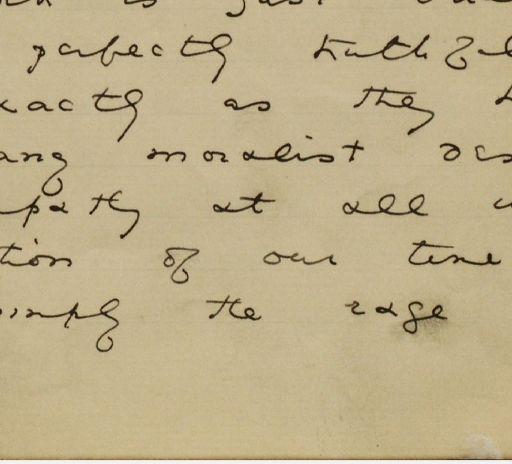 is just
perfectly truthful
xactly as they
any moralist des
pathy at all
tion of our time
simply the rage